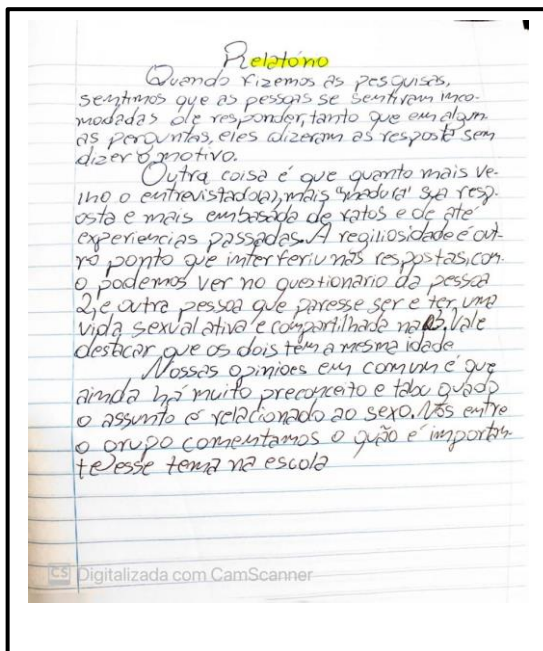 Relatório
Quando fizemos as pesquisas,
sentimos que as pessoas se sentiram inco-
modadas de responder, tanto que em algum
as perguntas, eles dizeram as resposta sem
dizer o motivo.
Outra coisa é que quanto mais ve-
lho o entrevistado(a), mais "madura" sua resp-
osta e mais embasada de fatos e de até
experiencias passadas. A regiliosidade é out-
ro ponto que interferiu nas respostas, com
o podemos ver no questionario da pessoa
2, e outra pessoa que paresse ser e ter, uma
vida sexual ativa e compartilhada na 3. Vale
destacar que os dois têm a mesma idade
Nossas opinioes em comum é que
ainda há muito preconceito e tabu quado
o assunto é relacionado ao sexo. Nós entre
o grupo comentamos o quão é importan-
te esse tema na escola
CS Digitalizada com CamScanner